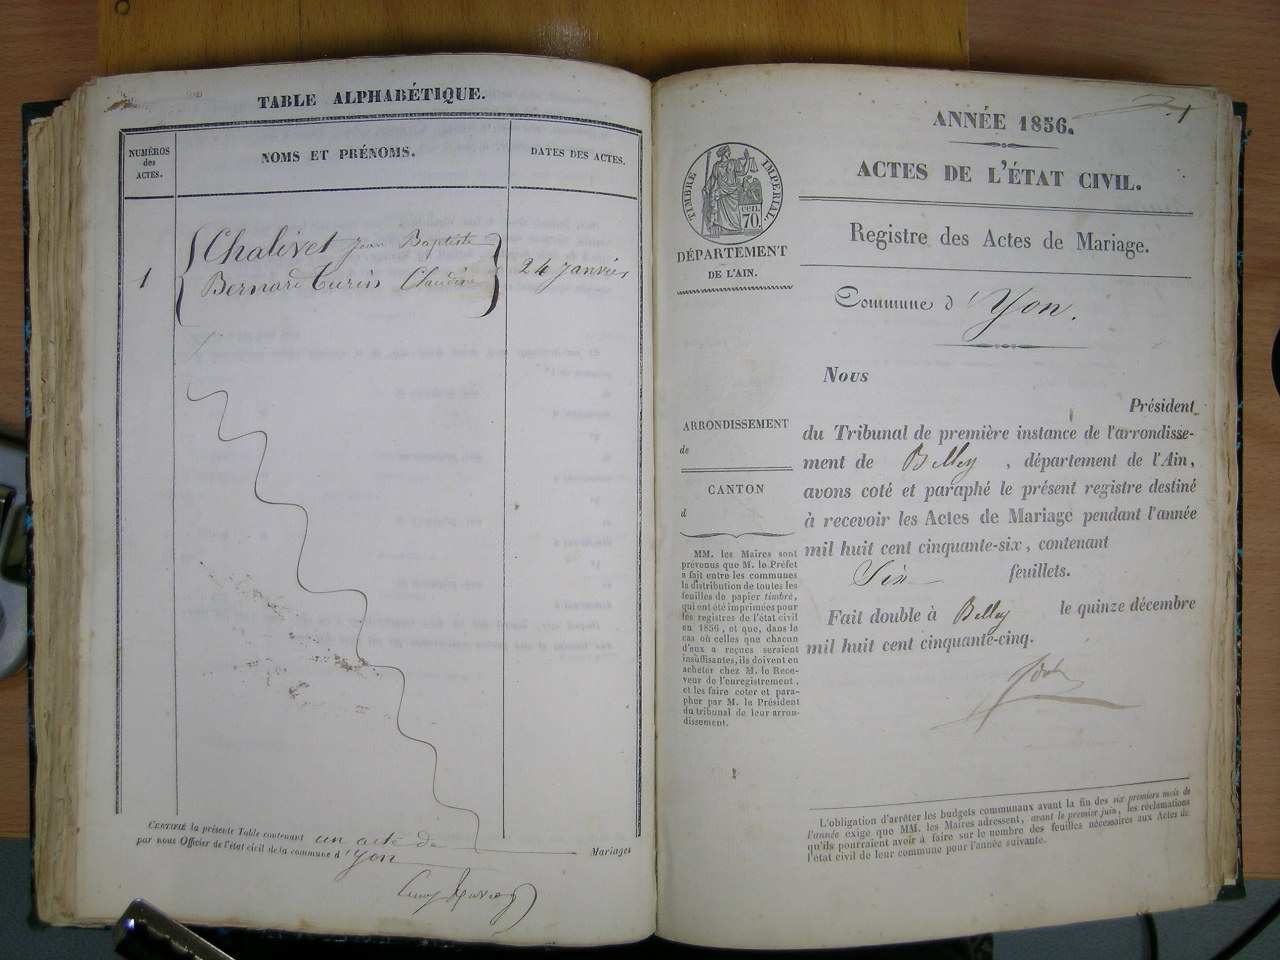 TABLE ALPHABÉTIQUE.
NUMÉROS
des
ACTES.
NOMS ET PRÉNOMS.
DATES DES ACTES.
1
Chalivet Jean Baptiste
Bernard Turin Claudine
24 Janvier
CERTIFIÉ la présente Table contenant un acte de Mariages
par nous Officier de l'état civil de la commune d'Yon
1
ANNÉE 1856.
ACTES DE L'ÉTAT CIVIL.
TIMBRE IMPÉRIAL
cen.
70.
DÉPARTEMENT
DE L'AIN.
Registre des Actes de Mariage.
Commune d'Yon.
Nous
Président
ARRONDISSEMENT
de
CANTON
d
du Tribunal de première instance de l'arrondisse-
ment de Belley, département de l'Ain,
avons coté et paraphé le présent registre destiné
à recevoir les Actes de Mariage pendant l'année
mil huit cent cinquante-six, contenant
Six feuillets.
Fait double à Belley le quinze décembre
mil huit cent cinquante-cinq.
MM. les Maires sont
prévenus que M. le Préfet
a fait entre les communes
la distribution de toutes les
feuilles de papier timbré,
qui ont été imprimées pour
les registres de l'état civil
en 1856, et que, dans le
cas où celles que chacun
d'eux a reçues seraient
insuffisantes, ils doivent en
acheter chez M. le Rece-
veur de l'enregistrement,
et les faire coter et para-
pher par M. le Président
du tribunal de leur arron-
dissement.
L'obligation d'arrêter les budgets communaux avant la fin des six premiers mois de
l'année exige que MM. les Maires adressent, avant le premier juin, les réclamations
qu'ils pourraient avoir à faire sur le nombre des feuilles nécessaires aux Actes de
l'état civil de leur commune pour l'année suivante.